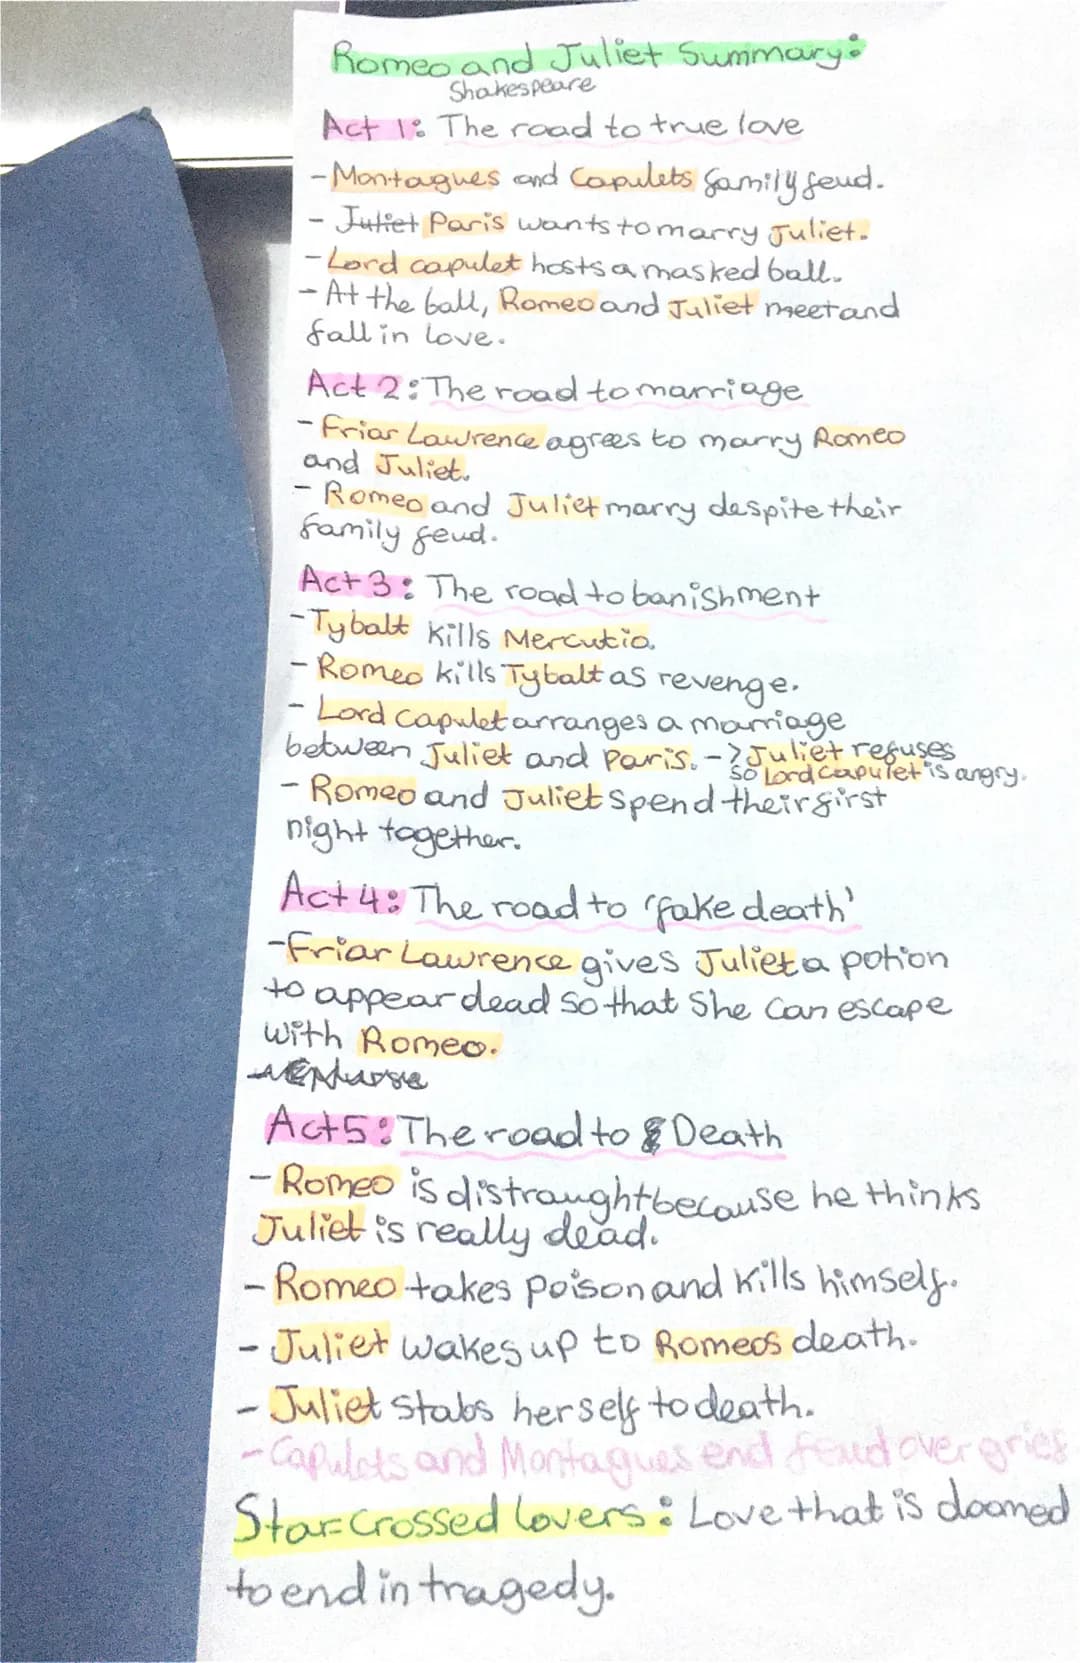 Romeo and Juliet Summary:
Shakespeare
Act 1: The road to true love
- Montagues and Capulets family feud.
- Juliet Paris wants to marry Juliet.
- Lord capulet hosts a masked ball.
- At the ball, Romeo and Juliet meet and
fall in love.
Act 2: The road to marriage
- Friar Lawrence agrees to marry Romeo
and Juliet.
- Romeo and Juliet marry despite their
family feud.
Act 3: The road to banishment
- Tybalt kills Mercutio.
- Romeo kills Tybalt as revenge.
- Lord Capulet arranges a marriage
between Juliet and Paris. -> Juliet refuses
so Lord Capulet is angry.
- Romeo and Juliet spend their first
night together.
Act 4: The road to 'fake death'
- Friar Lawrence gives Juliet a potion
to appear dead so that she can escape
with Romeo.
Nurse
Act 5: The road to Death
- Romeo is distraught because he thinks
Juliet is really dead.
- Romeo takes poison and kills himself.
- Juliet wakes up to Romeos death.
- Juliet stabs herself to death.
- Capulets and Montagues end feud over grief
Star-crossed lovers: Love that is doomed
to end in tragedy.